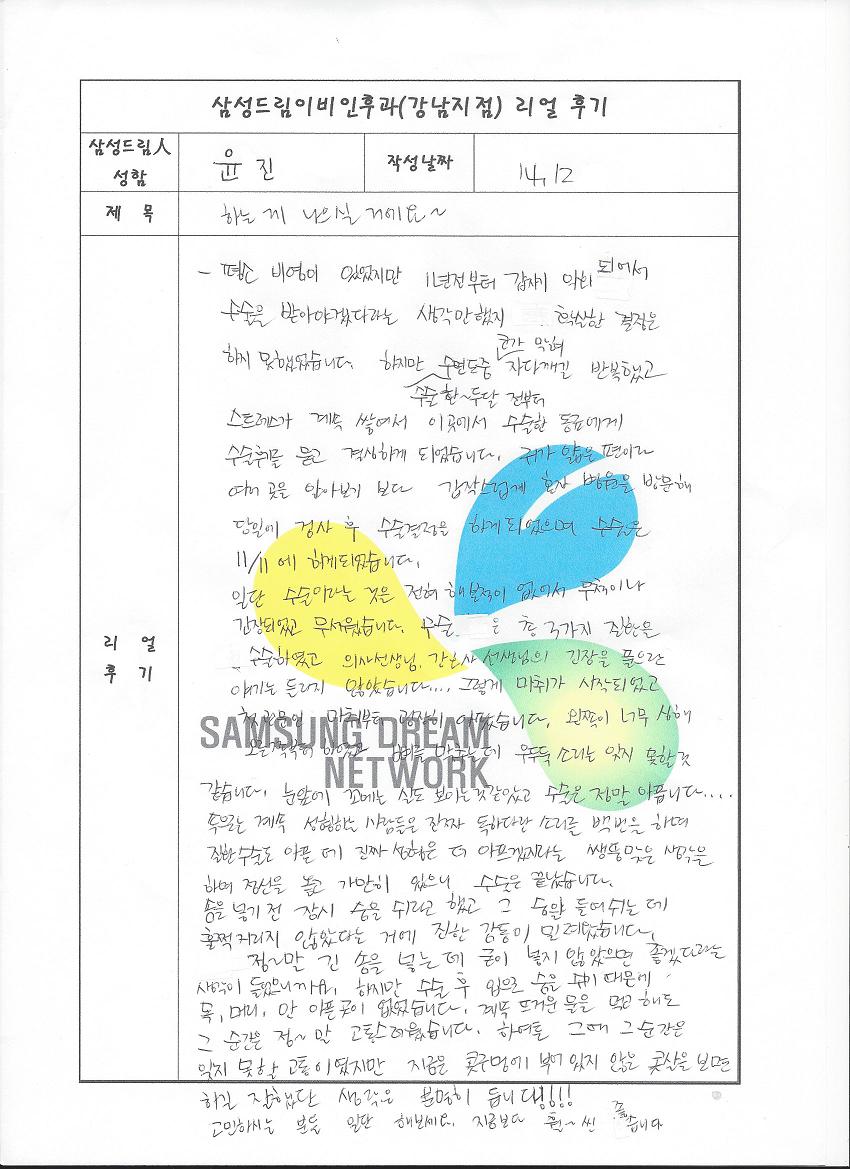 삼성드림이비인후과(강남지점) 리얼 후기
삼성드림人 성함
윤 진
작성날짜
14, 12
제 목
하는 게 나으실 거에요~
리 얼
후 기
- 평소 비염이 있었지만 11년전부터 갑자기 악화 되어서
수술을 받아야겠다라는 생각만했지 확실한 결정은
하지 못했었습니다. 하지만 수면도중 코가 막혀 자다깨길 반복했고
수술 한~두달 전부터
스트레스가 계속 쌓여서 이곳에서 수술한 동료에게
수술후기를 듣고 결심하게 되었습니다. 귀가 얇은 편이라
여러 곳을 알아보기 보다 갑작스럽게 혼자 병원을 방문해
당일에 검사 후 수술결정을 하게되었으며 수술은
11/11 에 하게되었습니다.
일단 수술이라는 것은 전혀 해본적이 없어서 무척이나
긴장되었고 무서웠습니다. 수술 은 총 3가지 질환을
수술하였고 의사선생님, 간호사 선생님의 긴장을 풀으란
얘기는 들리지 않았습니다.... 그렇게 마취가 시작되었고
첫관문인 마취부터 굉장히 아팠습니다. 왼쪽이 너무 심해
하였고 뼈를 맞추는데 우두둑 소리는 잊지 못할것
같습니다. 눈앞에 꼬메는 실도 보이는것같았고 수술은 정말 아픕니다....
속으로는 계속 성형하는 사람들은 진짜 독하다란 소리를 백번을 하며
질환수술도 아픈 데 진짜 성형은 더 아프겠지라는 쌩뚱맞은 생각을
하며 정신을 놓고 가만히 있으니 수술은 끝났습니다.
솜을 넣기 전 잠시 숨을 쉬라고 했고 그 숨을 들여쉬는 데
훌쩍거리지 않았다는 거에 진한 감동이 밀려왔습니다.
정~말 긴 솜을 넣는 데 굳이 넣지 않았으면 좋겠다라는
생각이 들었으니까요. 하지만 수술 후 입으로 숨을 쉬기 때문에
목, 머리, 안 아픈곳이 없었습니다. 계속 뜨거운 물을 먹고 해도
그 순간은 정~말 고통스러웠습니다. 하여튼 그때 그 순간은
잊지 못할 고통이였지만 지금은 콧구멍에 붙어 있지 않은 콧살을 보면
하길 잘했단 생각은 분명히 듭니다!!!!
고민하시는 분들 일단 해보세요. 지금보다 훨~씬 좋습니다
SAMSUNG DREAM
NETWORK